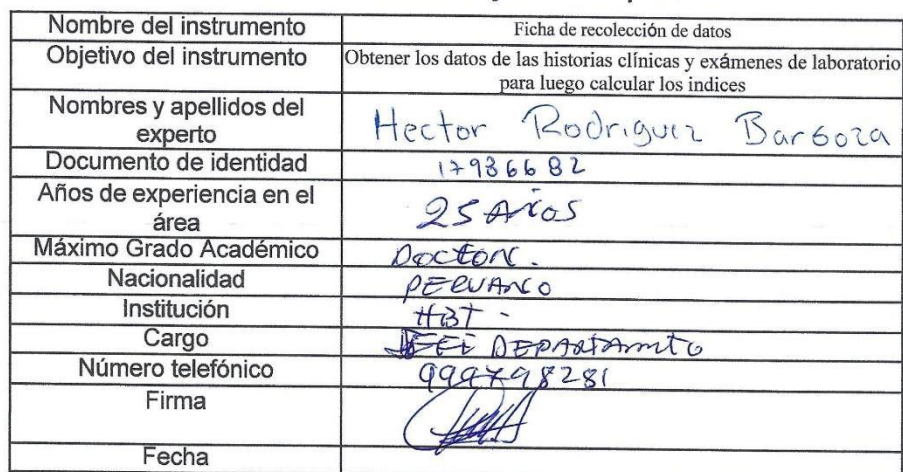 Nombre del instrumento Ficha de recolección de datos
Objetivo del instrumento Obtener los datos de las historias clínicas y exámenes de laboratorio
para luego calcular los indices
Nombres y apellidos del
experto Hector Rodriguez Barboza
Documento de identidad 17936682
Años de experiencia en el
área 25 Años
Máximo Grado Académico Doctor.
Nacionalidad PERUANO
Institución HBT -
Cargo DEPARTAMTO
Número telefónico 999798281
Firma
Fecha